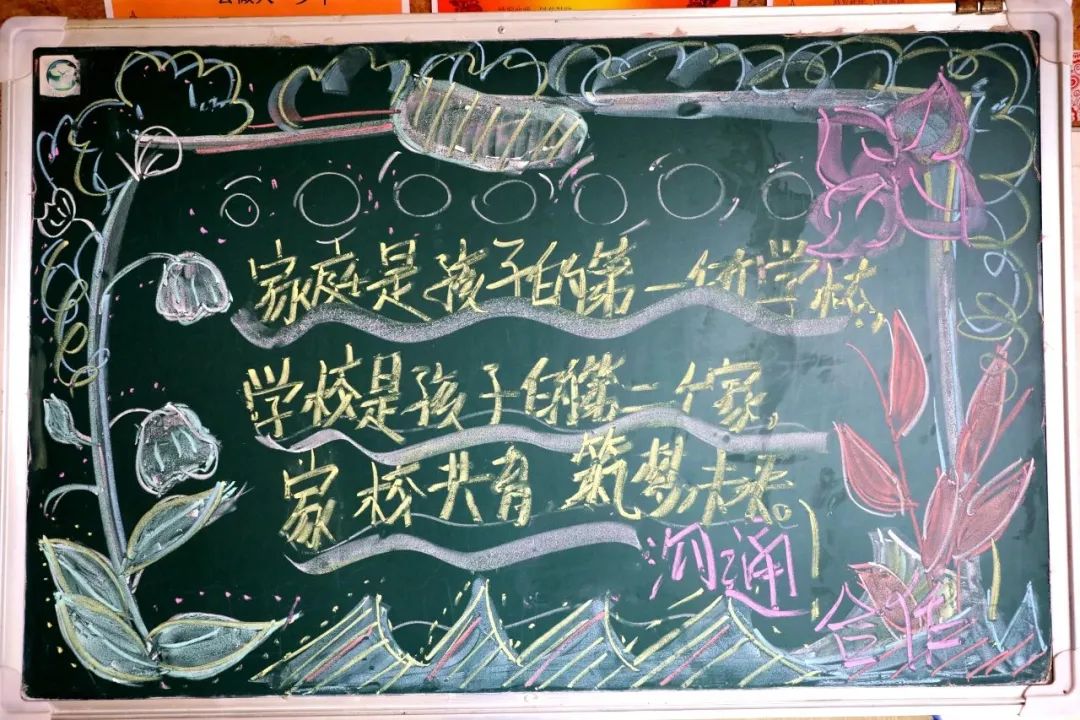 家庭是孩子的第一所学校,
学校是孩子的第二个家,
家校共育 筑梦未来。
沟通
合作